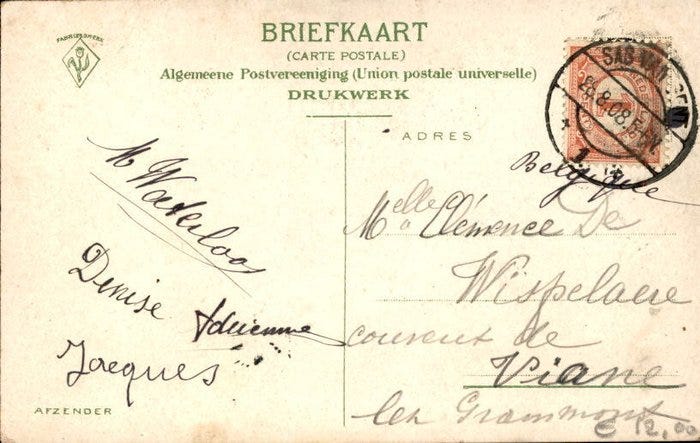 FABRIEKSMERK
BRIEFKAART
(CARTE POSTALE)
Algemeene Postvereeniging (Union postale universelle)
DRUKWERK
SAS VAN GENT
28.8.08.
1
ADRES
M Waterloos
Denise
Adrienne
Jacques
AFZENDER
Belgique
Melle Clémence De
Wispelaere
couvent de
Viane
lez Grammont
€ 12,00